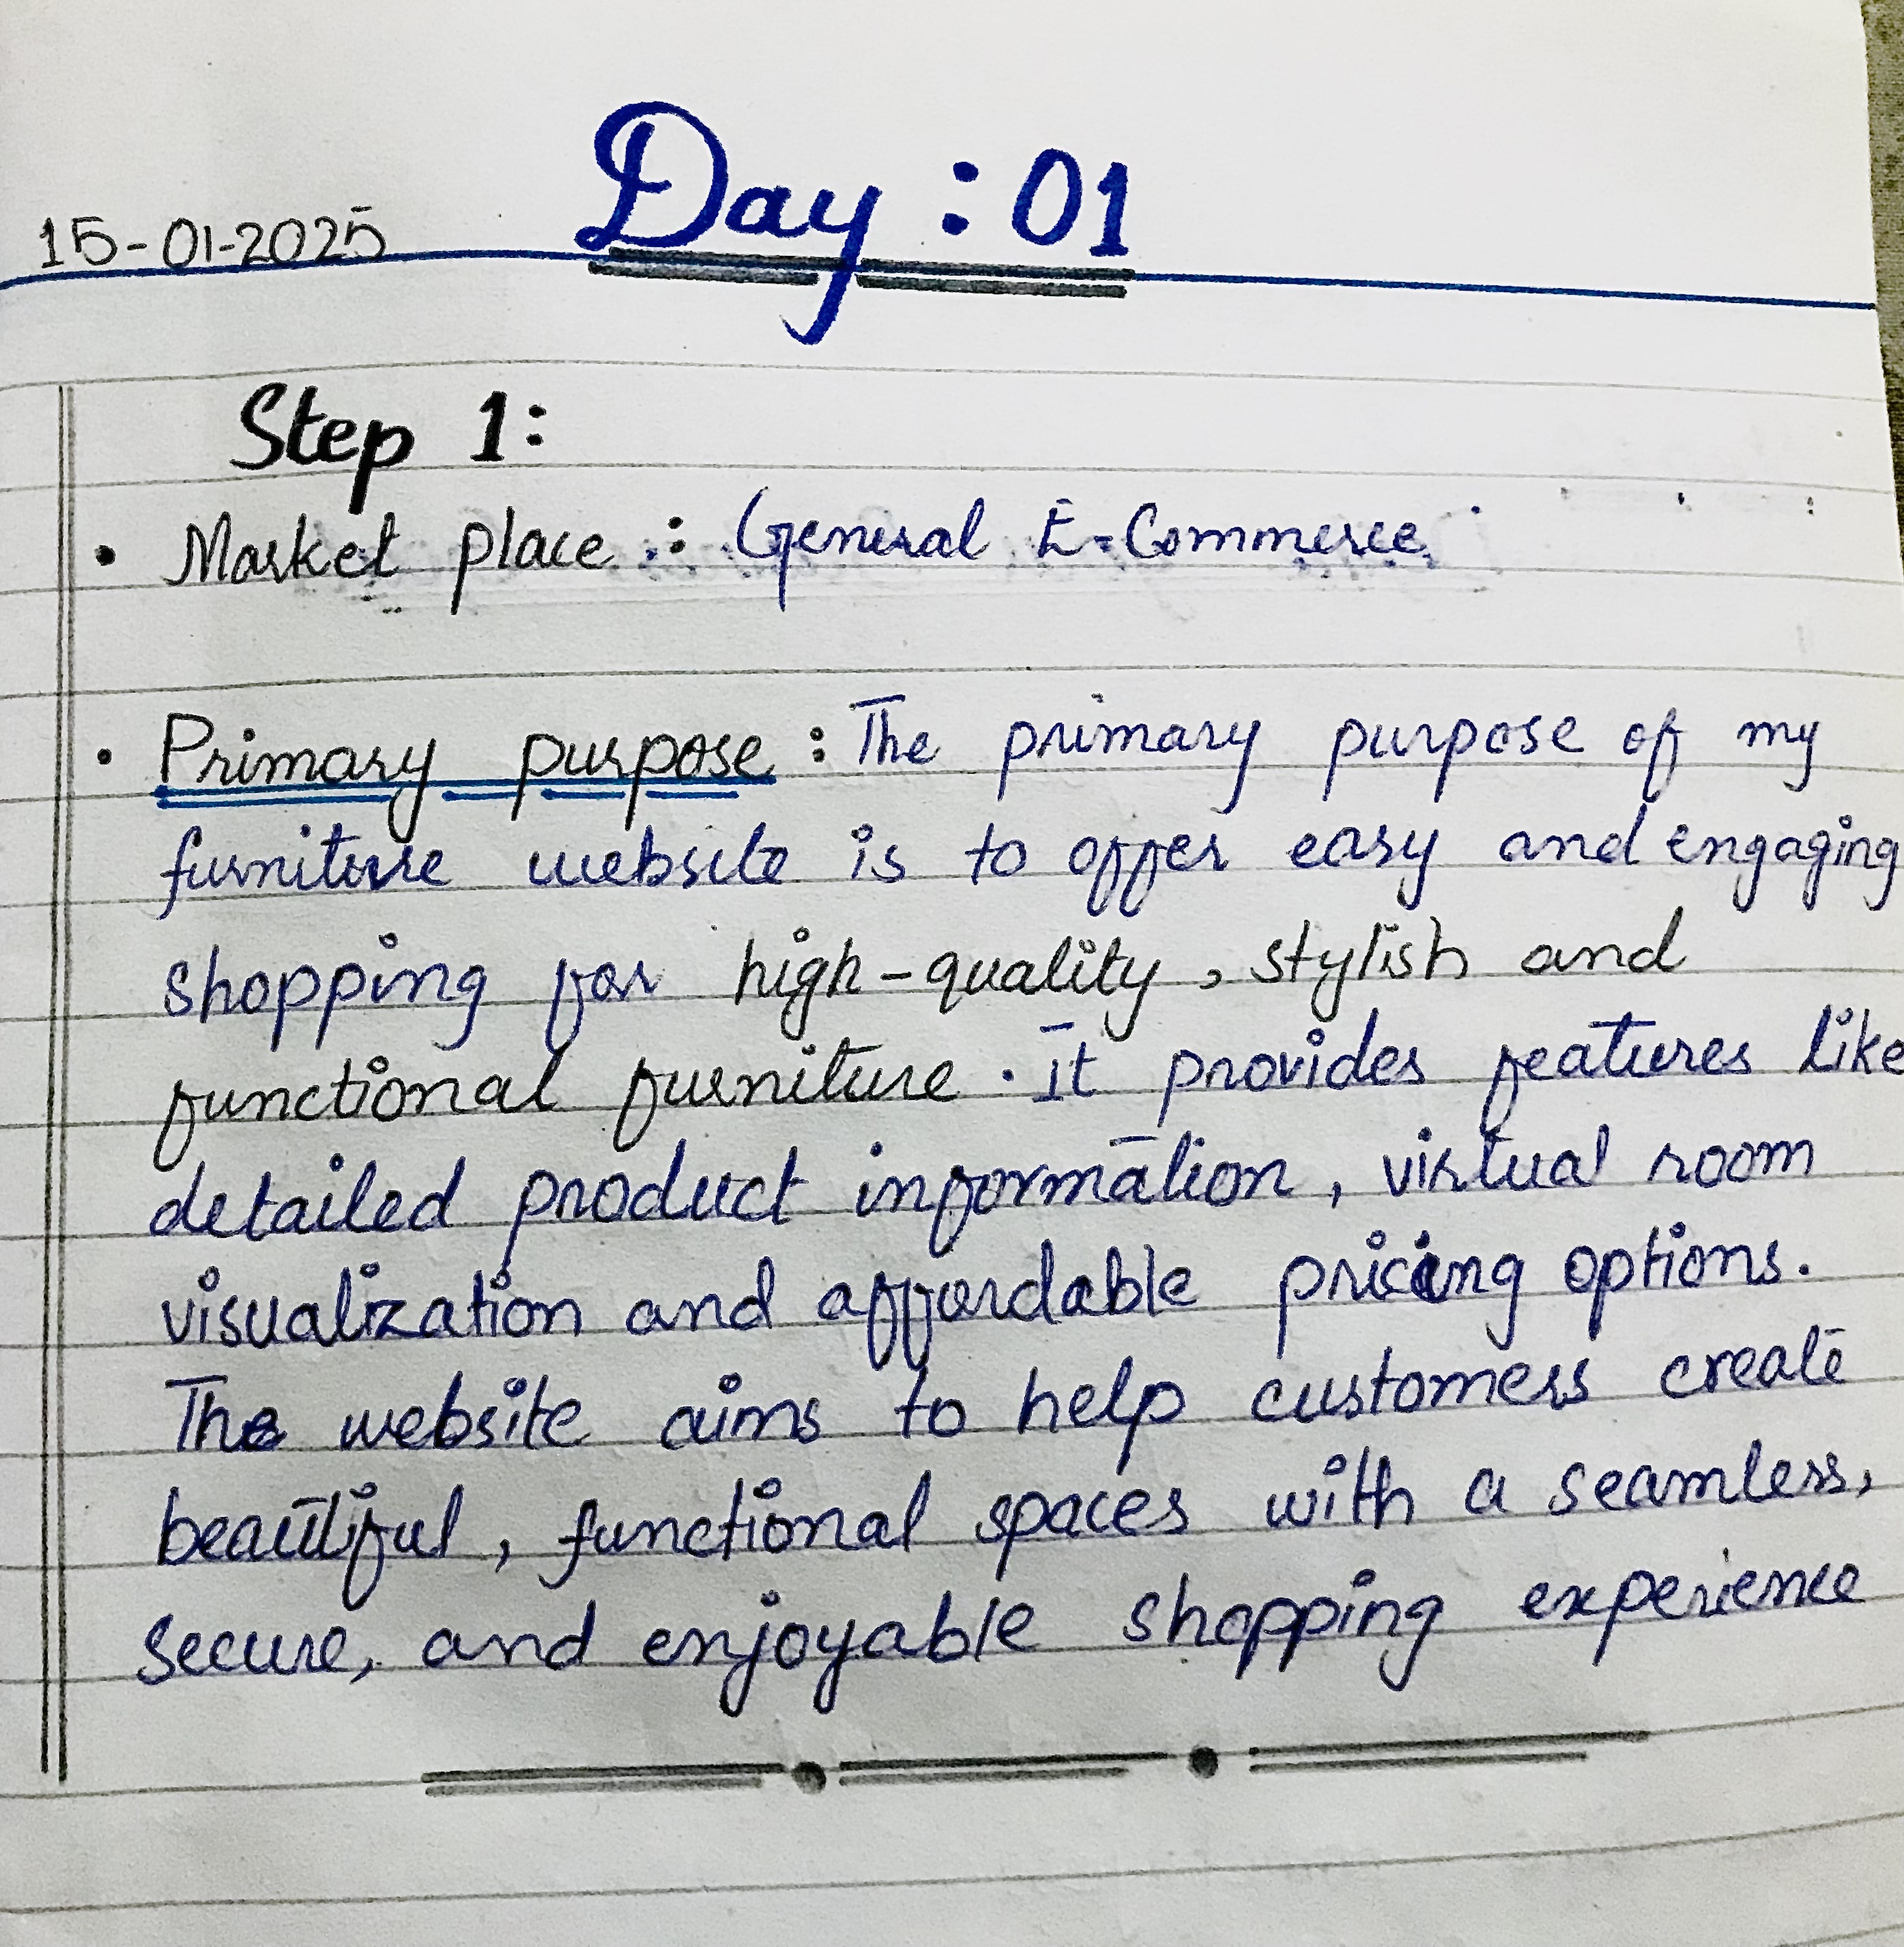 Day : 01
15-01-2025
Step 1:
• Market place : General E-Commerce
• Primary purpose : The primary purpose of my
furniture website is to offer easy and engaging
shopping for high-quality, stylish and
functional furniture. It provides features like
detailed product information, virtual room
visualization and affordable pricing options.
The website aims to help customers create
beautiful, functional spaces with a seamless,
secure, and enjoyable shopping experience